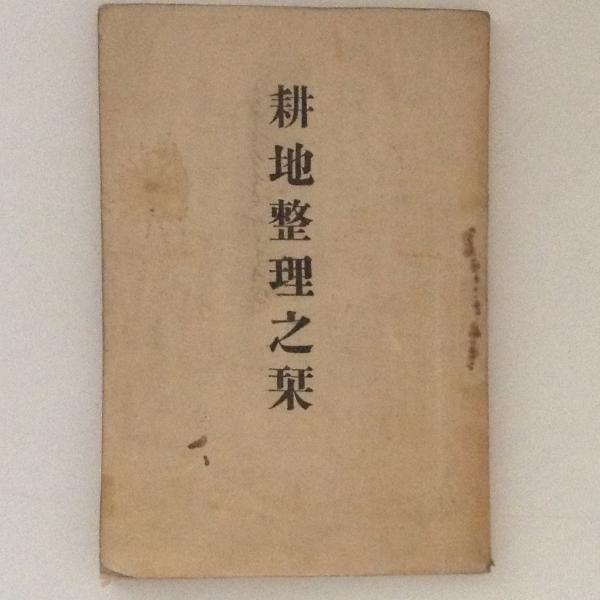 耕地整理之栞